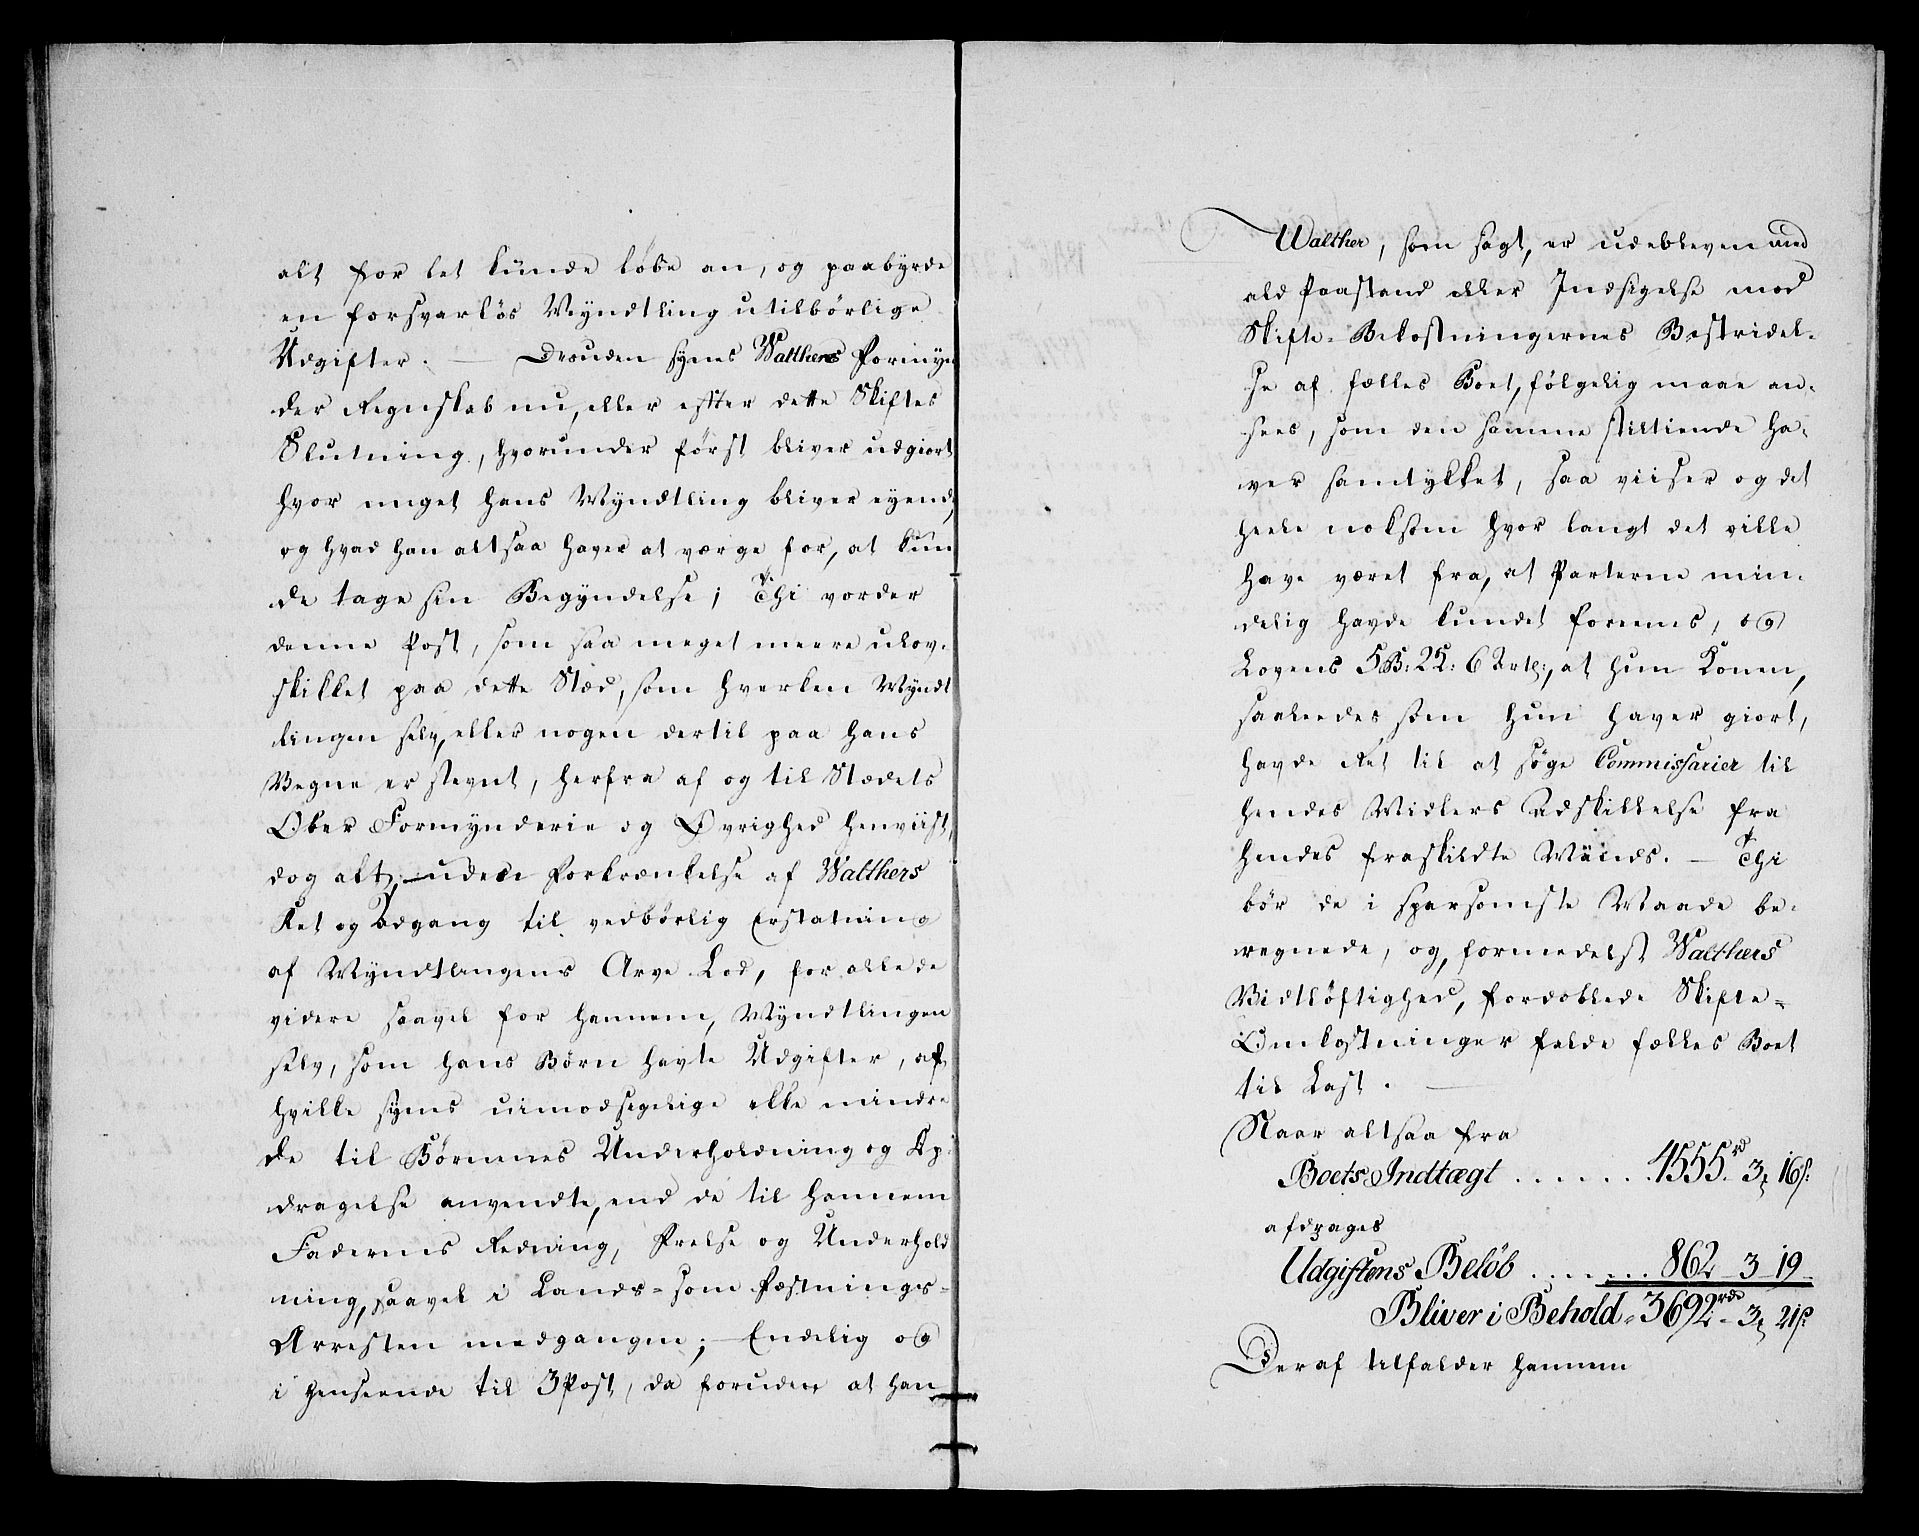 alt for let kunde løbe an, og paabyrde
en forsvarløs Myndtling utilbørlige
Udgifter. — Desuden synes Walthers Formyn
der Regnskab nu, eller efter dette Skiftes
Slutning, hvorunder først bliver udgiort
hvor meget hans Myndtling bliver eyende,
og hvad han altsaa haver at værge for, at kun
de tage sin Begyndelse; Thi vorder
denne Post, som saa meget meere ulov-
skikket paa dette Stæd, som hverken Myndt
lingen selv, eller nogen dertil paa hans
Vegne er stevnt, herfra af og til Stædets
Ober Formynderie og Øvrighed henviist,
dog alt, uden Forkrænkelse af Walthers
Ret og Adgang til vedbørlig Erstatning
af Myndtlingens Arve Lod, for alle de
videre saavel for hannem, Myndtlingen
selv, som hans Børn havte Udgifter, af
hvilke synes uimodsigelige ikke mindre
de til Børnenes Underholdning og Op-
dragelse anvendte, end de til hannem
Faderens Redning, Frelse og Underhold
ning, saavel i Lands- som Fæstnings-
Arresten medgangne; — Endelig og
i henseende til 3 Post, da foruden at han
Walther, som sagt, er udebleven med
ald Paastand eller Indsigelse mod
Skifte-Bekostningernes Bestridel-
se af fælles Boet, følgelig maae an-
sees, som den samme stiltiende ha-
ver samtykket, saa viiser og det
heele noksom hvor langt det ville
have været fra, at Parterne min-
delig havde kundet foreenes, og
Lovens 5 B: 2 C: 62 Art:, at hun Konen,
saaleedes som hun haver giort,
havde Ret til at søge Commissarier til
hendes Midlers Adskillelse fra
hendes fraskildte Mands. — Thi
bør de i sparsomste Maade be-
regnede, og, formedelst Walthers
Vidtløftighed, fordoblede Skifte-
Omkostninger falde fælles Boet
til Last. —
Naar altsaa fra
Boets Indtægt . . . . . . . 4555 rd 3 ꝶ 16 s:
afdrages
Udgiftens Beløb . . . . . . 862 - 3 - 19
Bliver i Behold - 3692 rde - 3 ꝶ 21 s:
Deraf tilfalder hannem